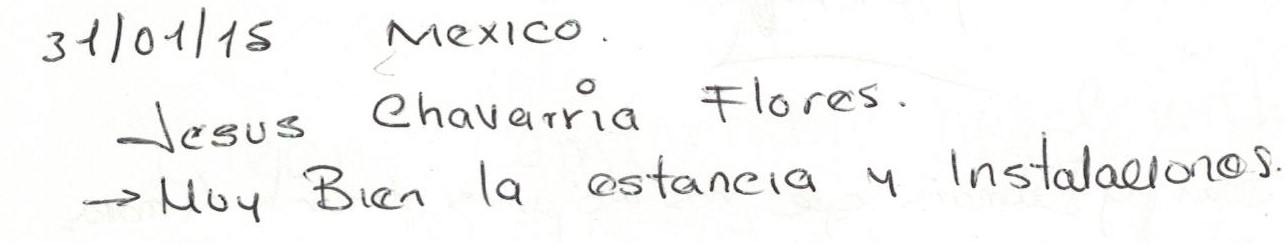 31/01/15 Mexico.
Jesus Chavarria Flores.
→ Muy Bien la estancia y Instalaciones.